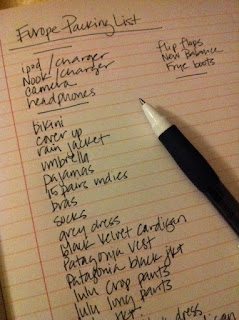 Europe Packing List
ipod/charger
Nook/charger
camera
headphones
flip flops
New Balance
Frye boots
bikini
cover up
rain jacket
umbrella
pajamas
15 pairs undies
bras
socks
grey dress
black velvet cardigan
patagonia vest
Patagonia black jkt
lulu crop pants
lulu long pants
dress